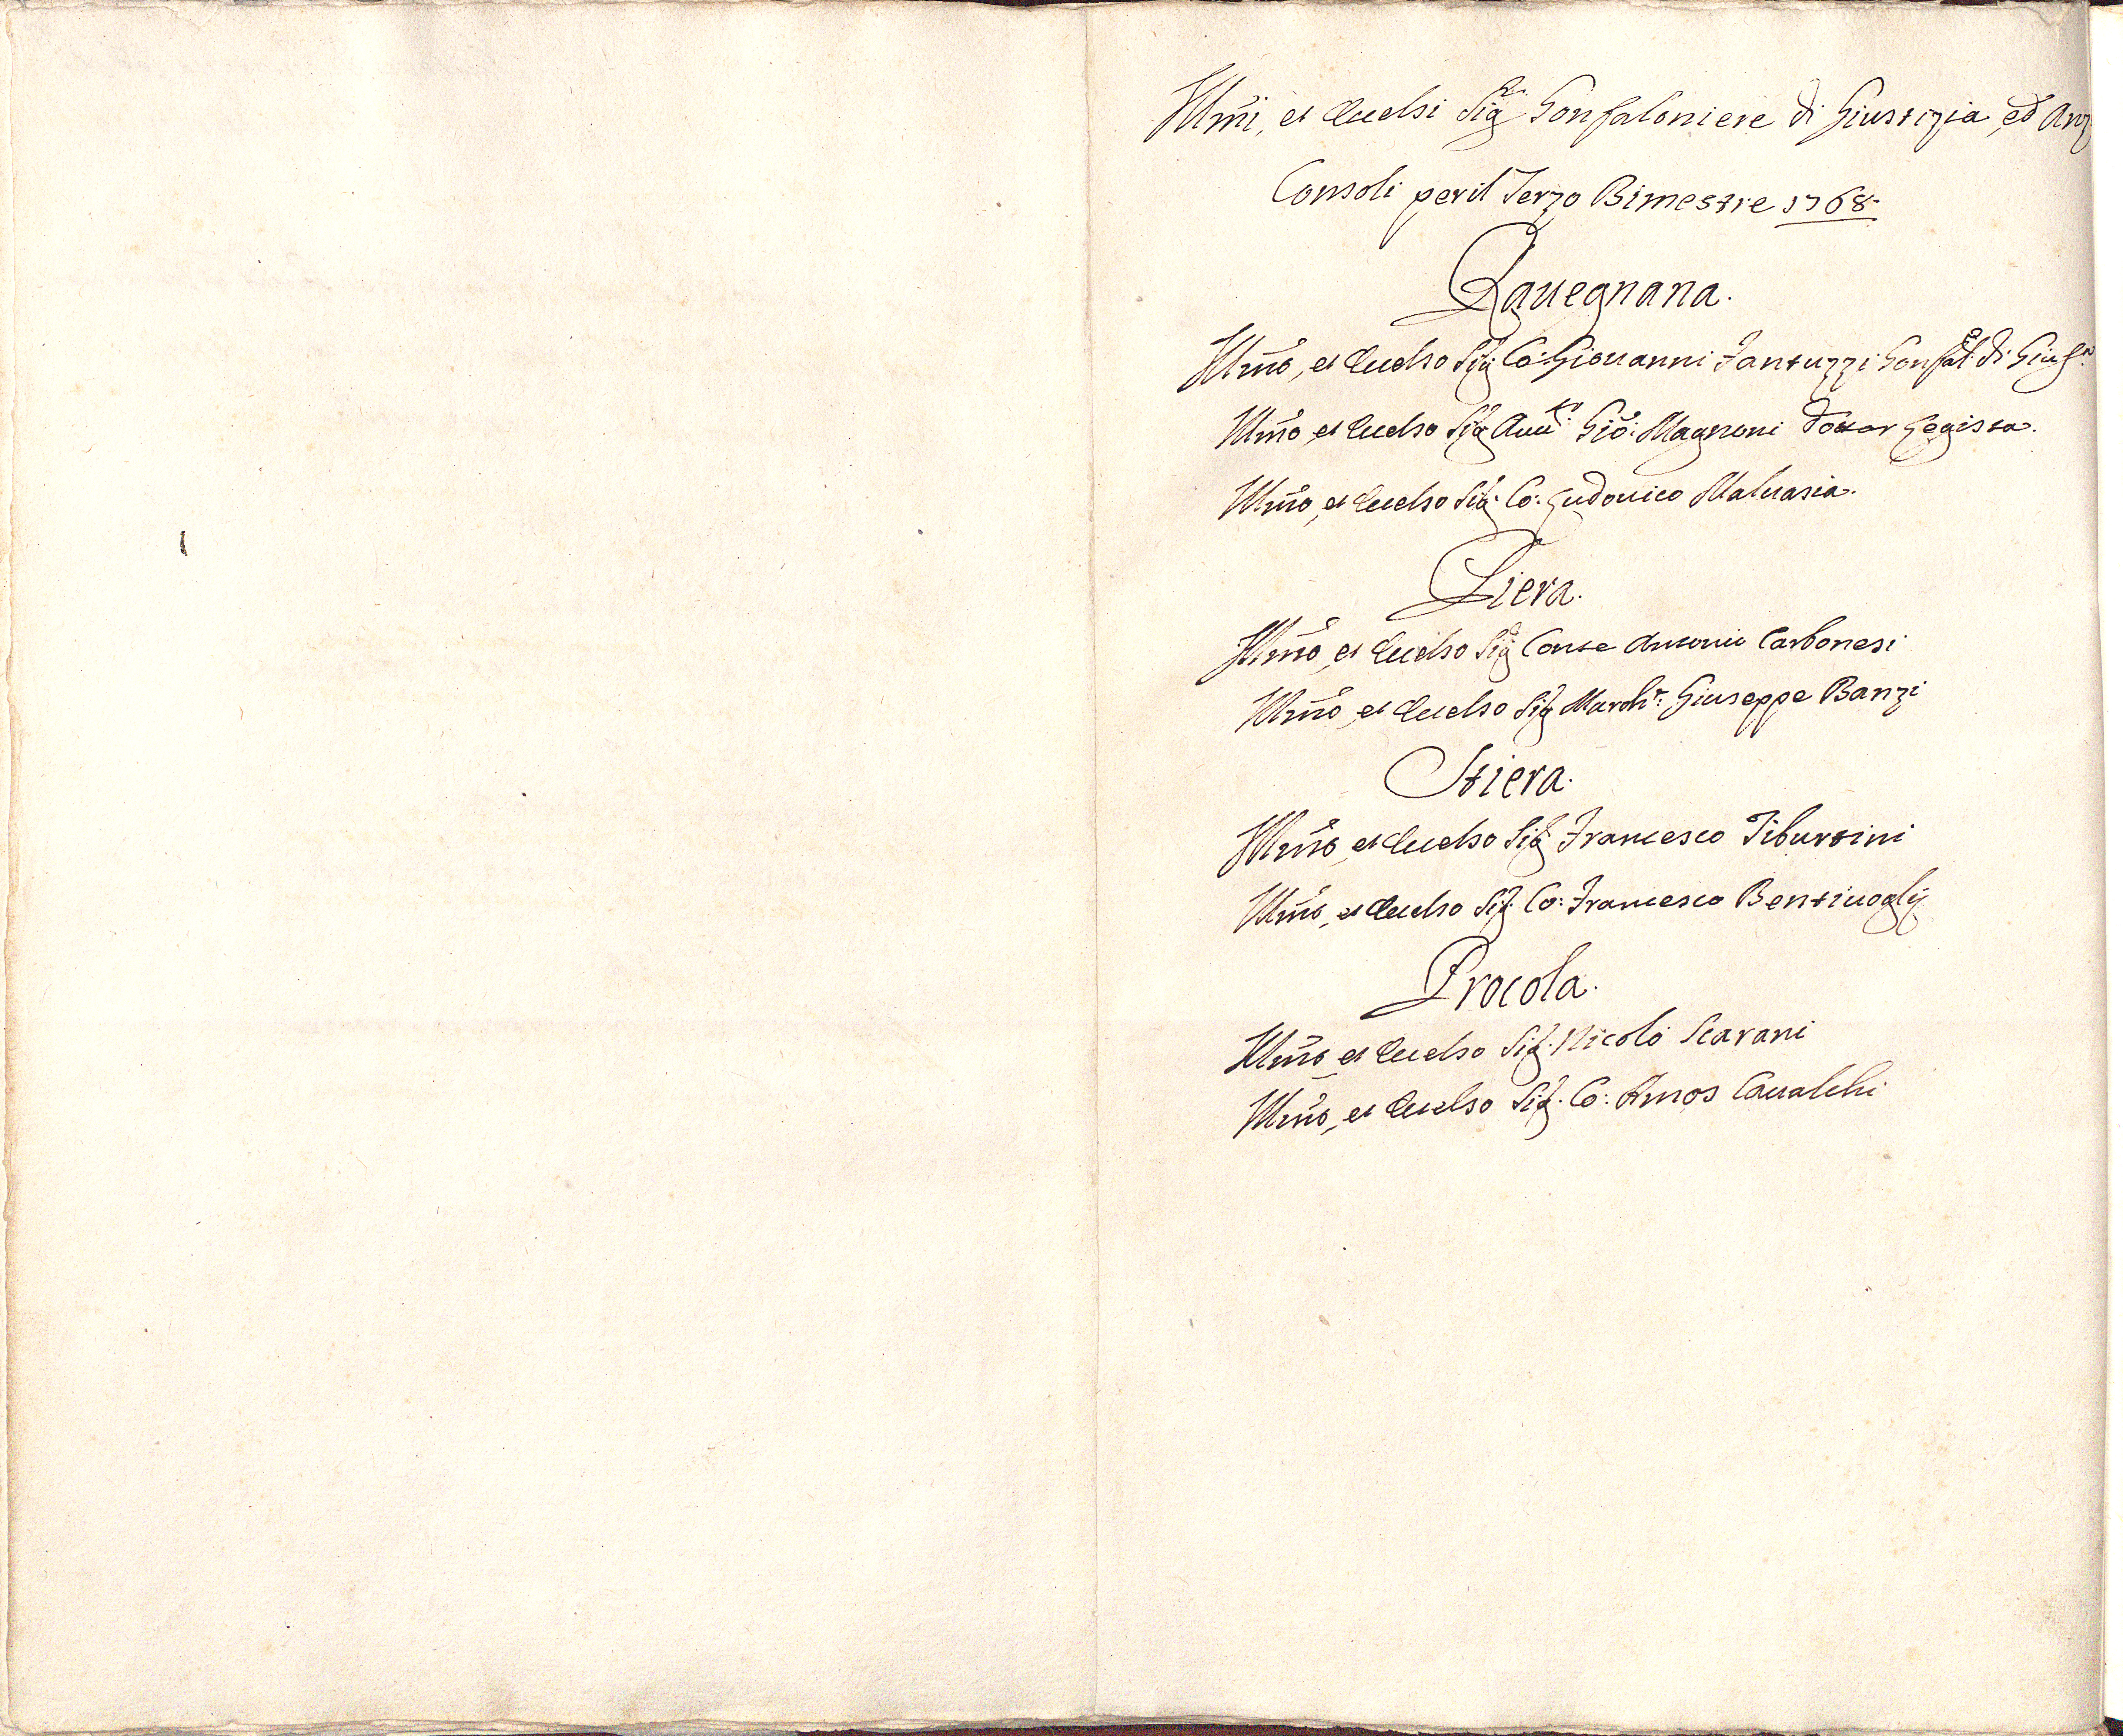 Illmi, et Eccelsi Sig.ri Gonfaloniere di Giustizia, ed Anz
Consoli per il Terzo Bimestre 1768.
Ravegnana.
Illmo, et Eccelso Sig. Co: Giovanni Fantuzzi Gonfal.e di Giust.a
Illmo, et Eccelso Sig. Avv.to Gio: Magnoni Dottor Legista.
Illmo, et Eccelso Sig. Co: Ludovico Malvasia.
Piera.
Illmo, et Eccelso Sig. Conte Antonio Carbonesi
Illmo, et Eccelso Sig. March.e Giuseppe Banzi
Stiera.
Illmo, et Eccelso Sig. Francesco Tiburtini
Illmo, et Eccelso Sig. Co: Francesco Bentivoglij
Procola.
Illmo, et Eccelso Sig. Nicolò Scarani
Illmo, et Eccelso Sig. Co: Amos Cavalchi